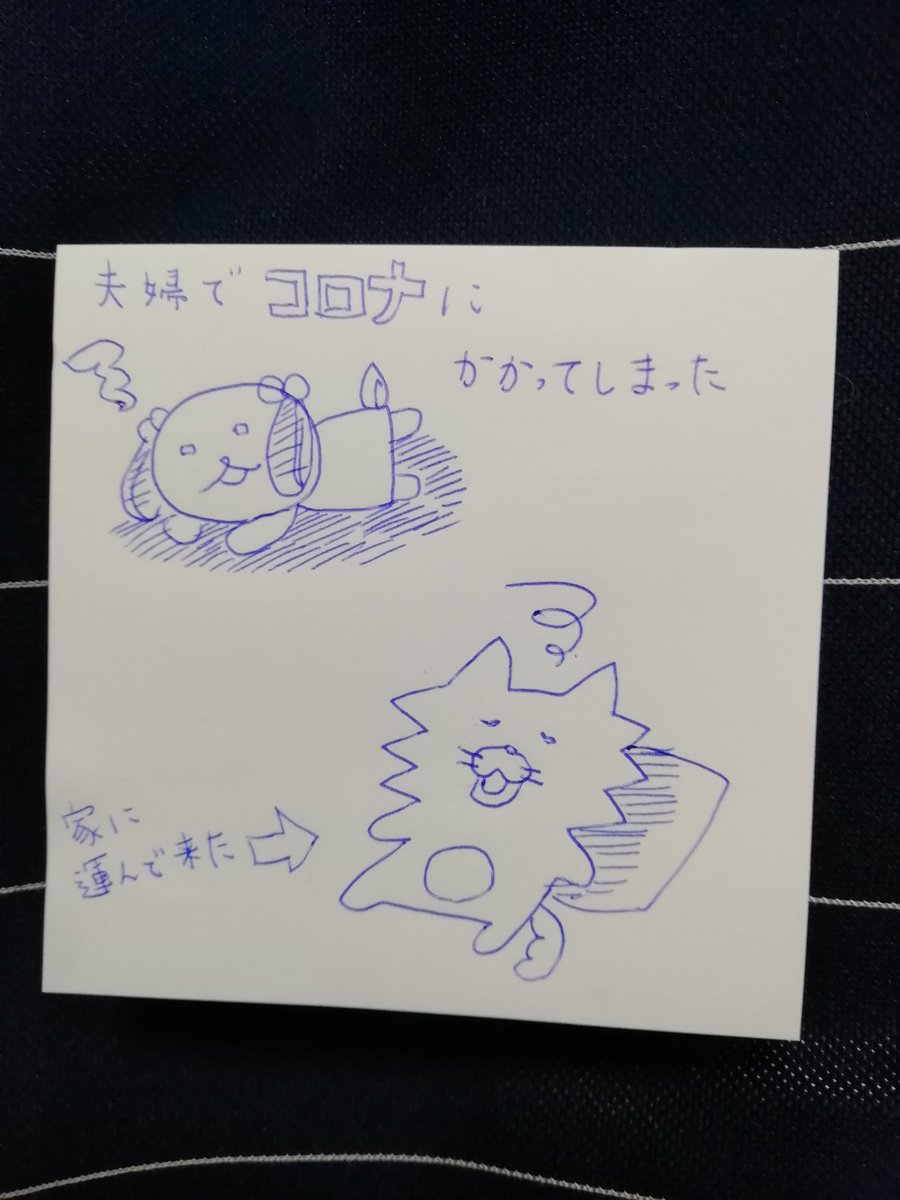 夫婦でコロナに
かかってしまった
家に
運んで来た